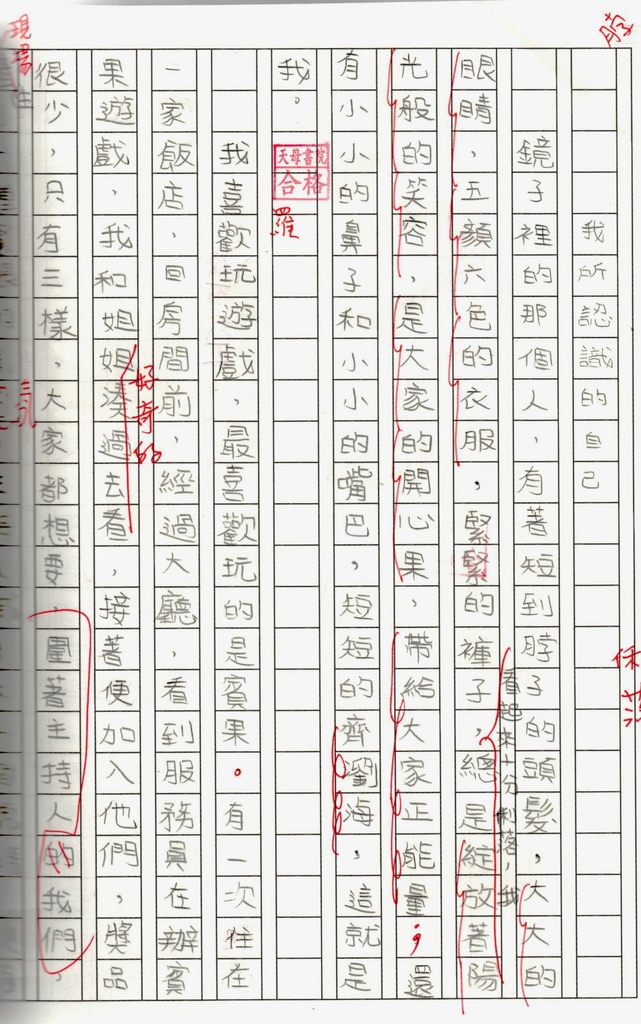 我所認識的自己
鏡子裡的那個人,有著短到脖子的頭髮,大大的
看起來十分俐落,我
眼睛,五顏六色的衣服,緊緊的褲子,總是綻放著陽
光般的笑容,是大家的開心果,帶給大家正能量,還
有小小的鼻子和小小的嘴巴,短短的齊劉海,這就是
我。
天母書院
合格
羅
我喜歡玩遊戲,最喜歡玩的是賓果。有一次住在
一家飯店,回房間前,經過大廳,看到服務員在辦賓
好奇的
果遊戲,我和姐姐湊過去看,接著便加入他們,獎品
很少,只有三樣,大家都想要,圍著主持人的我們,
現場